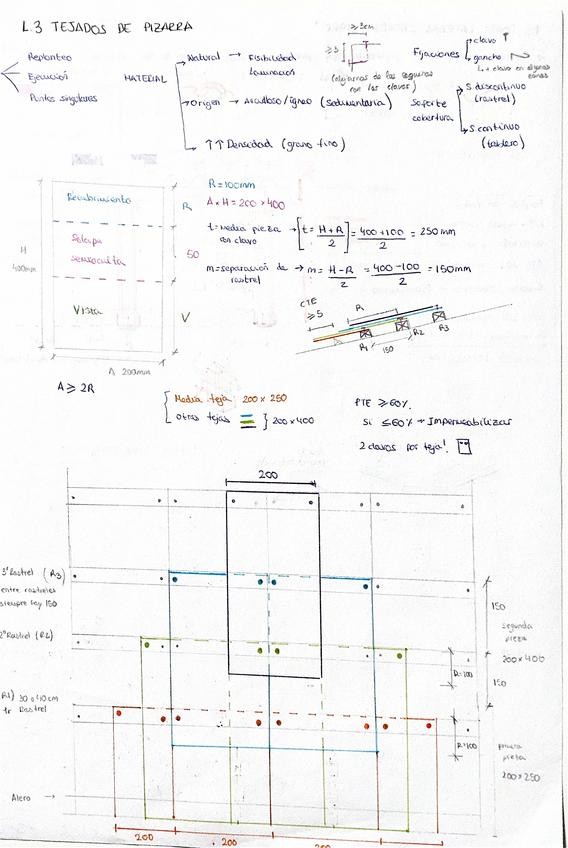 L.3 TEJADOS DE PIZARRA
Replanteo
Ejecución
Puntos singulares
MATERIAL
Natural → Fisibilidad
Laminación
Origen → Arcilloso/ígneo (Sedimentaria)
↑↑ Densidad (grano fino)
≥3cm
≥3
(alejarnos de las esquinas
con los clavos)
Fijaciones
clavo
gancho
+ clavo en algunas
zonas
Soporte
cobertura
S discontinuo
(rastrel)
S continuo
(tablero)
Recubrimiento
Solape
semioculta
Vista
R
50
V
H
400mm
A 200mm
A ≥ 2R
R = 100mm
A x H = 200 x 400
t = Media pieza → t = H+R / 2 = 400+100 / 2 = 250mm
con clavo
m = separación de → m = H-R / 2 = 400-100 / 2 = 150mm
rastrel
CTE
≥5
R
R1
R2
R3
150
Media teja: 200 x 250
otras tejas } 200 x 400
PTE ≥ 60%
Si ≤ 60% → Impermeabilizar
2 clavos por teja!
200
3º Rastrel (R3)
entre rastreles
siempre hay 150
2º Rastrel (R2)
R1) 30 o 40 cm
Rastrel
Alero →
150
segunda
pieza
200x400
150
R=100
R=100
pieza
200 x 250
200
200
200